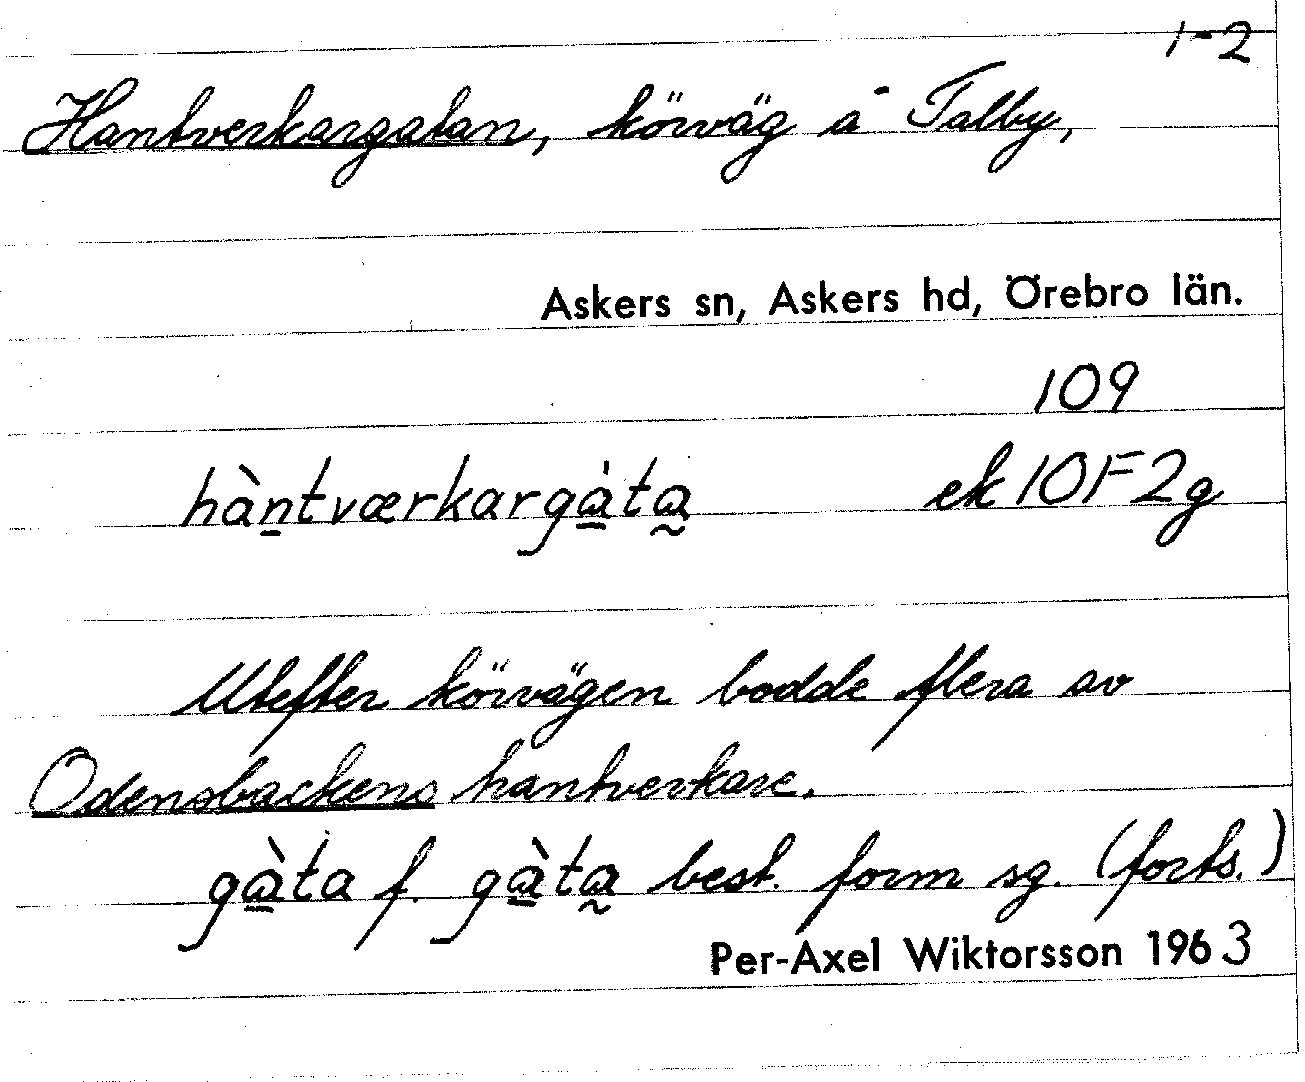 1-2
Hantverkargatan, körväg å Talby,
Askers sn, Askers hd, Örebro län.
109
hàn̠tværkargà̠ta̰ ek 10F2g
Utefter körvägen bodde flera av
Odensbackens hantverkare.
gà̠ta f. gà̠ta̰ best. form sg. (forts.)
Per-Axel Wiktorsson 1963